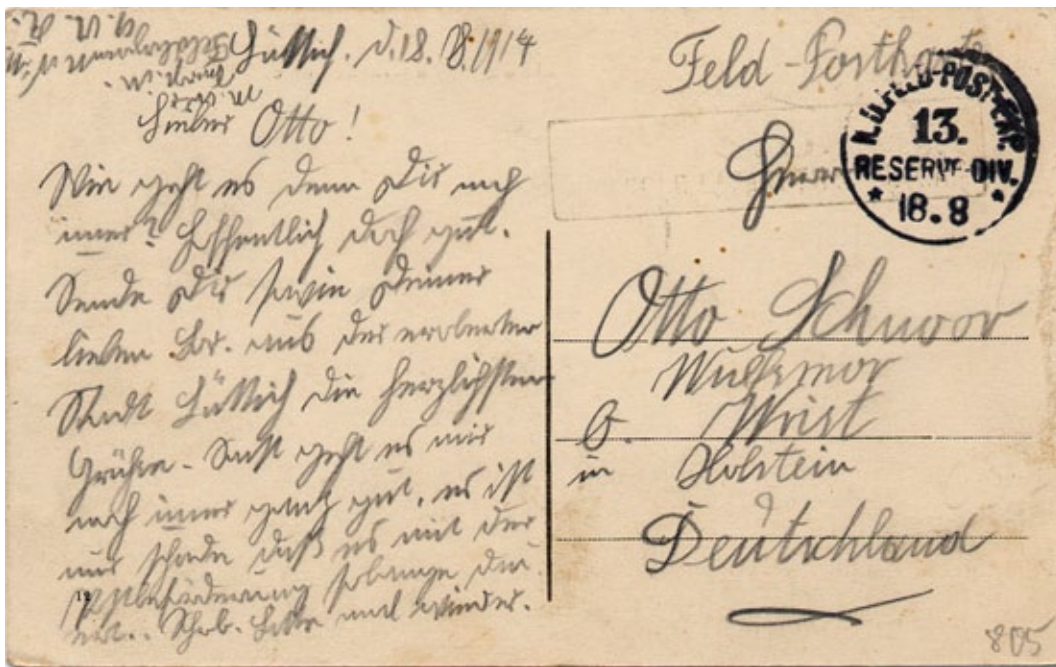 Lüttich. d. 18.8.1914
Lieber Otto!
Wie geht es denn Dir noch
immer? Hoffentlich doch gut.
Sende Dir sowie Deinen
lieben Br. aus der eroberten
Stadt Lüttich die herzlichsten
Grüße. Sonst geht es mir
noch immer ganz gut, es ist
nur schade daß es mit der
Postbeförderung solange
Schrb. bitte mal wieder.
Feld-Postkarte
K.D.FELD-POST-EXP.
13.
RESERVE-DIV.
* 18.8 *
Herrn
Otto Schnoor
Wulfsmoor
b. Wrist
in Holstein
Deutschland
805